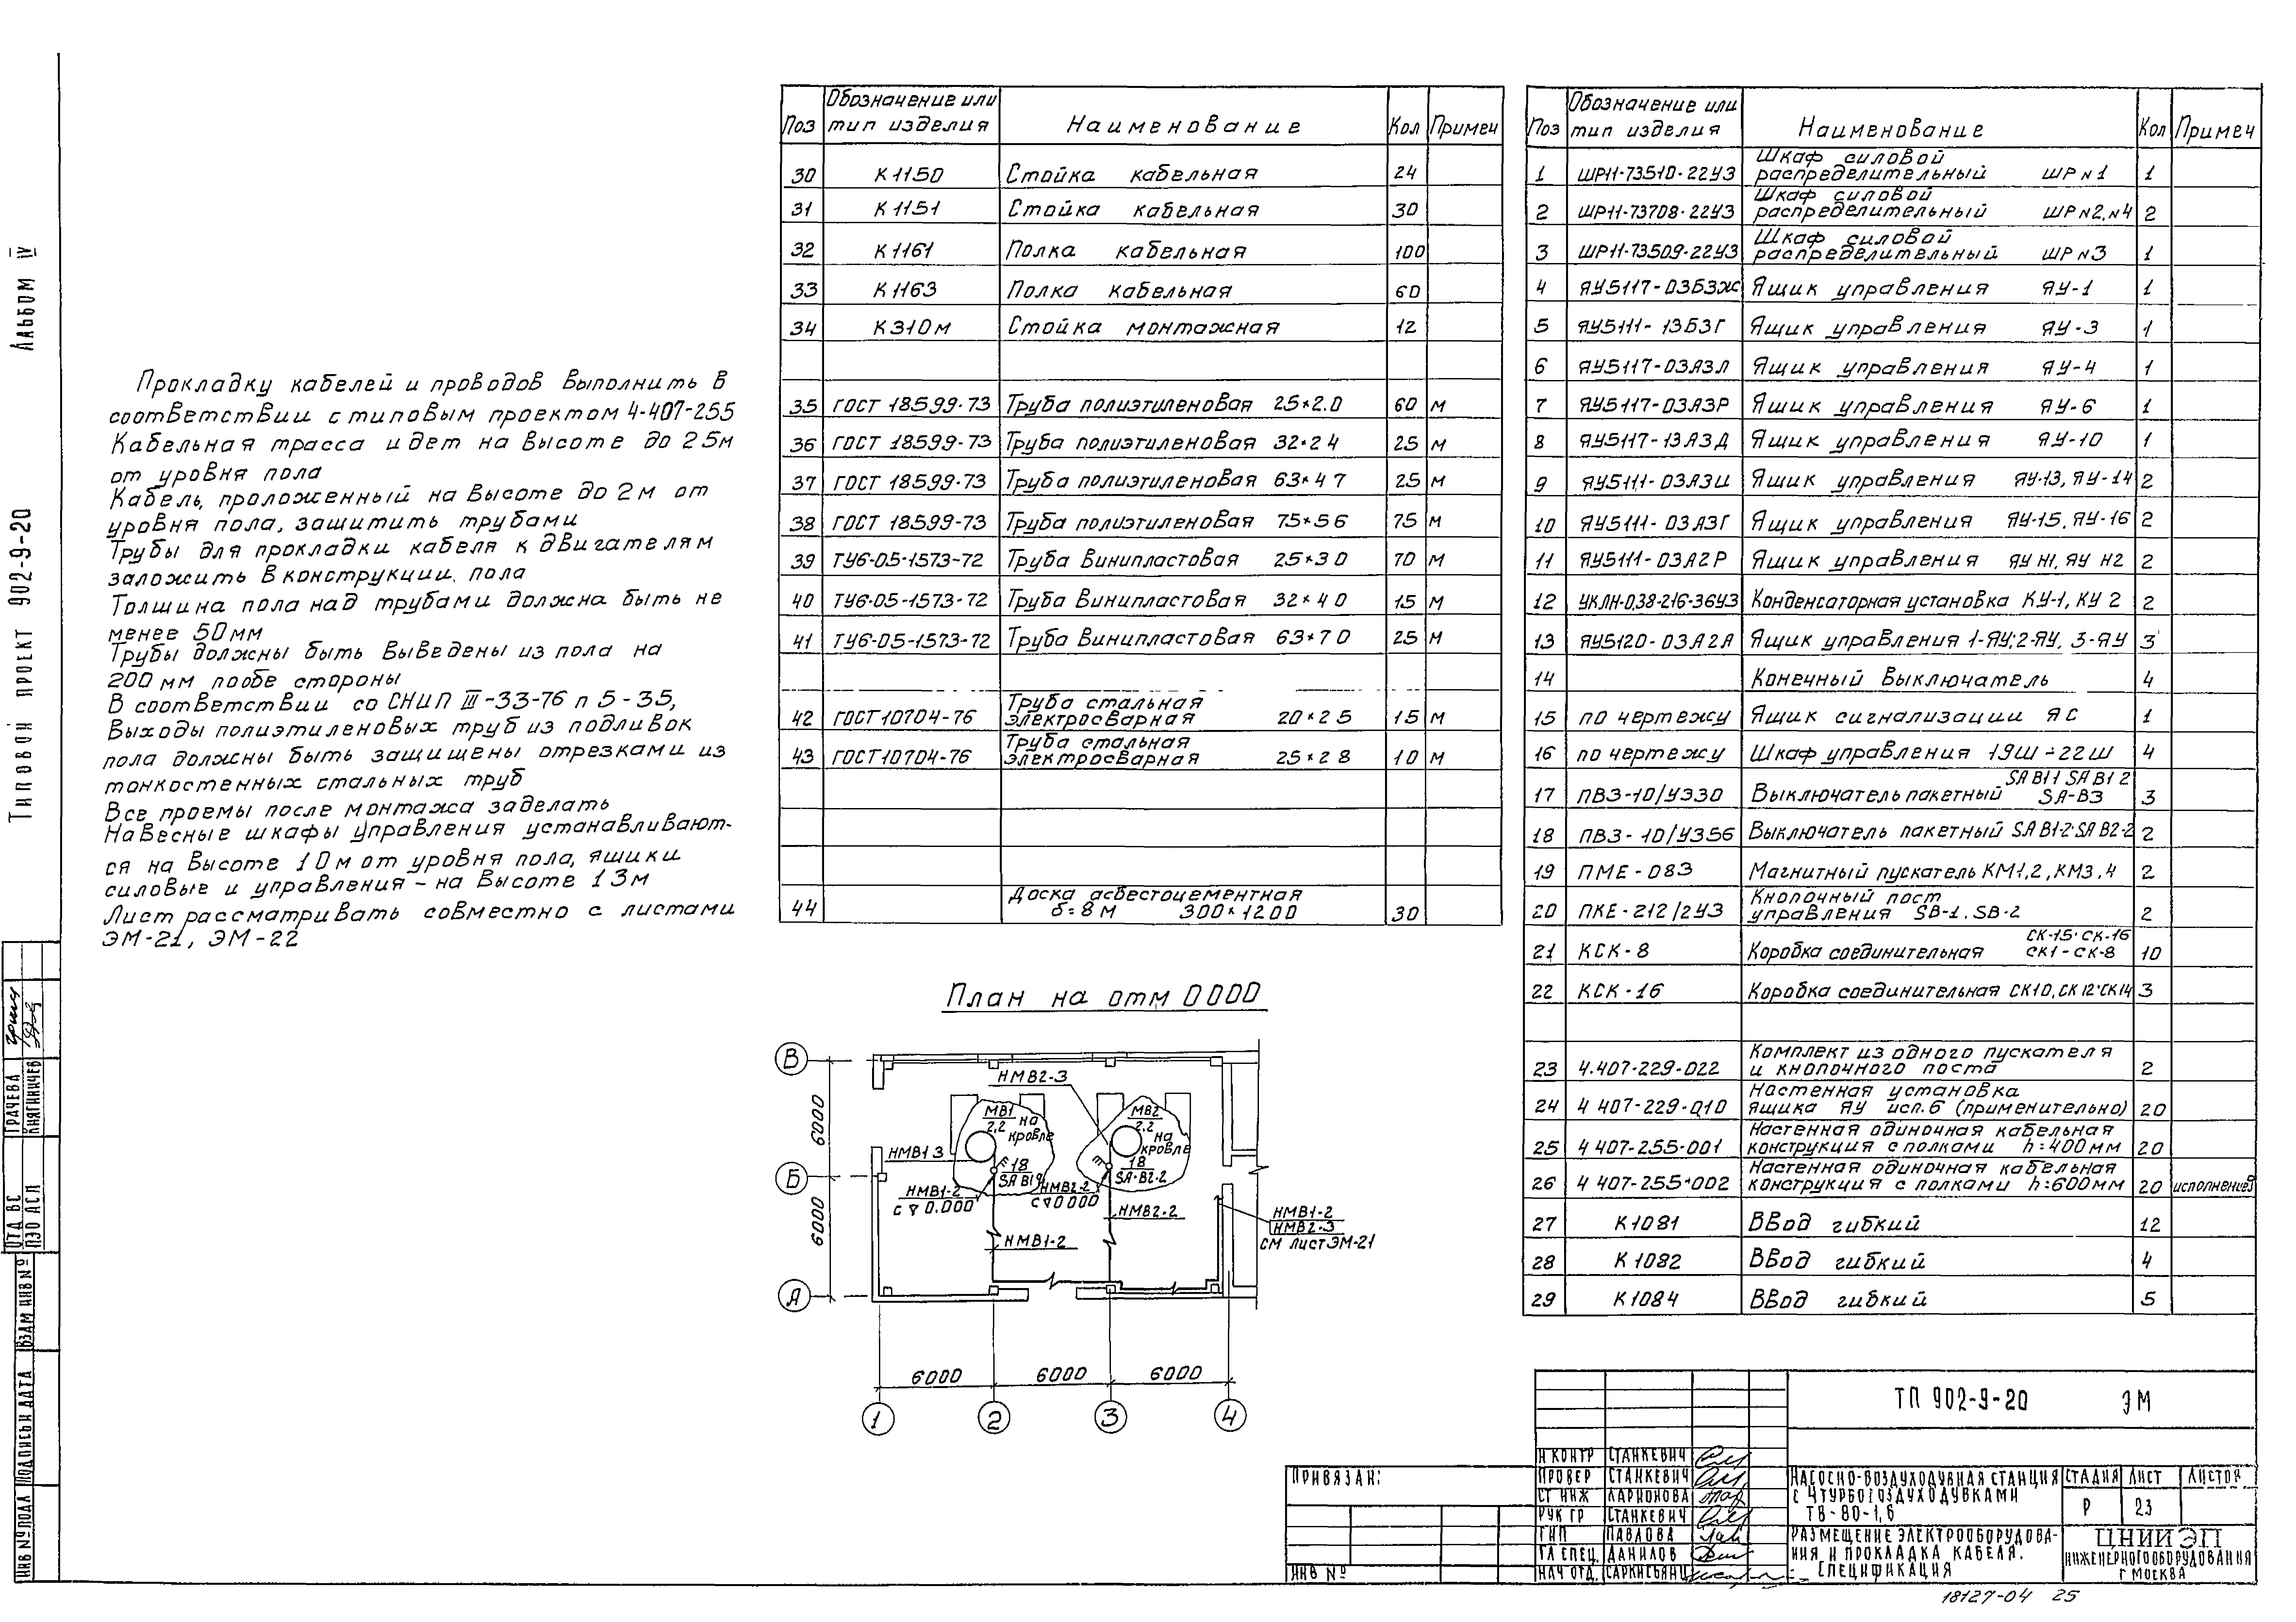 Альбом IV
Типовой проект 902-9-20
Прокладку кабелей и проводов выполнить в
соответствии с типовым проектом 4-407-255
Кабельная трасса идет на высоте до 25м
от уровня пола
Кабель, проложенный на высоте до 2м от
уровня пола, защитить трубами
Трубы для прокладки кабеля к двигателям
заложить в конструкции пола
Толщина пола над трубами должна быть не
менее 50мм
Трубы должны быть выведены из пола на
200мм по обе стороны
В соответствии со СНиП III-33-76 п 5-35,
Выходы полиэтиленовых труб из подливок
пола должны быть защищены отрезками из
тонкостенных стальных труб
Все проемы после монтажа заделать
Навесные шкафы управления устанавливают-
ся на высоте 10м от уровня пола, ящики
силовые и управления - на высоте 13м
Лист рассматривать совместно с листами
ЭМ-21, ЭМ-22
Поз Обозначение или тип изделия Наименование Кол Примеч
30 К1150 Стойка кабельная 24
31 К1151 Стойка кабельная 30
32 К1161 Полка кабельная 100
33 К1163 Полка кабельная 60
34 К310м Стойка монтажная 12
35 ГОСТ 18599-73 Труба полиэтиленовая 25×2.0 60 м
36 ГОСТ 18599-73 Труба полиэтиленовая 32×24 25 м
37 ГОСТ 18599-73 Труба полиэтиленовая 63×47 25 м
38 ГОСТ 18599-73 Труба полиэтиленовая 75×56 75 м
39 ТУ6-05-1573-72 Труба винипластовая 25×30 70 м
40 ТУ6-05-1573-72 Труба винипластовая 32×40 15 м
41 ТУ6-05-1573-72 Труба винипластовая 63×70 25 м
42 ГОСТ10704-76 Труба стальная электросварная 20×25 15 м
43 ГОСТ10704-76 Труба стальная электросварная 25×28 10 м
44 Доска асбестоцементная б=8м 300×1200 30
План на отм 0000
В
Б
А
6000
6000
НМВ2-3
МВ1
2,2
на
кровле
МВ2
2,2
на
кровле
НМВ1 3
18
18
SA-В2-2
НМВ1-2
с 0.000
НМВ2-2
с 0000
НМВ2-2
НМВ1-2
НМВ1-2
НМВ2-3
см лист ЭМ-21
6000 6000 6000
1 2 3 4
Поз Обозначение или тип изделия Наименование Кол Примеч
1 ШР11-73510-22У3 Шкаф силовой распределительный ШР N1 1
2 ШР11-73708-22У3 Шкаф силовой распределительный ШР N2, N4 2
3 ШР11-73509-22У3 Шкаф силовой распределительный ШР N3 1
4 ЯУ5117-03Б3Ж Ящик управления ЯУ-1 1
5 ЯУ5111-13Б3Г Ящик управления ЯУ-3 1
6 ЯУ5117-03А3Л Ящик управления ЯУ-4 1
7 ЯУ5117-03А3Р Ящик управления ЯУ-6 1
8 ЯУ5117-13А3Д Ящик управления ЯУ-10 1
9 ЯУ5111-03А3И Ящик управления ЯУ-13, ЯУ-14 2
10 ЯУ5111-03А3Г Ящик управления ЯУ-15, ЯУ-16 2
11 ЯУ5111-03А2Р Ящик управления ЯУ Н1, ЯУ Н2 2
12 УКЛН-0,38-216-36У3 Конденсаторная установка КУ-1, КУ 2 2
13 ЯУ5120-03А2А Ящик управления 1-ЯУ; 2-ЯУ, 3-ЯУ 3
14 Конечный выключатель 4
15 по чертежу Ящик сигнализации ЯС 1
16 по чертежу Шкаф управления 19Ш÷22Ш 4
17 ПВ3-10/У330 Выключатель пакетный SA В1 1 SA В1 2 SA-В3 3
18 ПВ3-10/У356 Выключатель пакетный SA В1-2·SA В2-2 2
19 ПМЕ-083 Магнитный пускатель КМ1,2, КМ3,4 2
20 ПКЕ-212/2У3 Кнопочный пост управления SB-1, SB-2 2
21 КСК-8 Коробка соединительная СК-15·СК-16 СК1-СК-8 10
22 КСК-16 Коробка соединительная СК10, СК 12·СК14 3
23 4.407-229-022 Комплект из одного пускателя и кнопочного поста 2
24 4 407-229-010 Настенная установка ящика ЯУ исп. б (применительно) 20
25 4 407-255-001 Настенная одиночная кабельная конструкция с полками h=400мм 20
26 4 407-255-002 Настенная одиночная кабельная конструкция с полками h=600мм 20
27 К1081 Ввод гибкий 12
28 К1082 Ввод гибкий 4
29 К1084 Ввод гибкий 5
ТП 902-9-20 ЭМ
Привязан:
Инв №
Н контр Станкевич
Провер Станкевич
Ст инж Ларионова
Рук гр Станкевич
ГИП Павлова
Гл спец. Данилов
Нач отд. Саркисьянц
Насосно-воздуходувная станция
с 4 турбовоздуходувками
ТВ-80-1,6
Стадия Лист Листов
Р 23
Размещение электрооборудова-
ния и прокладка кабеля.
Спецификация
ЦНИИЭП
инженерного оборудования
г Москва
18127-04 25
Отд ВС Грачева
ПЭО АСП Княгиничев
Инв № подл Подпись и дата Взам инв №